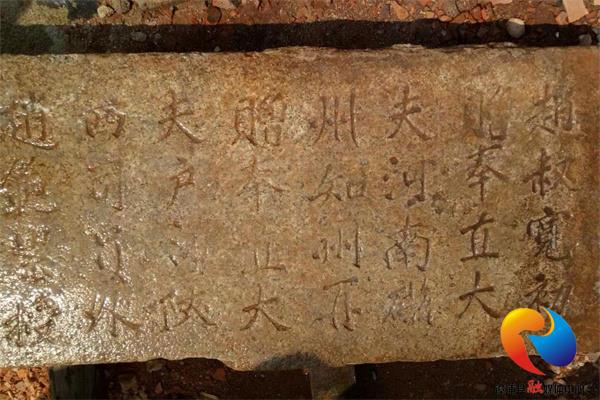 趙叔寬初
贈奉直大
夫河南磁
州知州再
贈奉直大
夫戶部陝
西司員外
趙